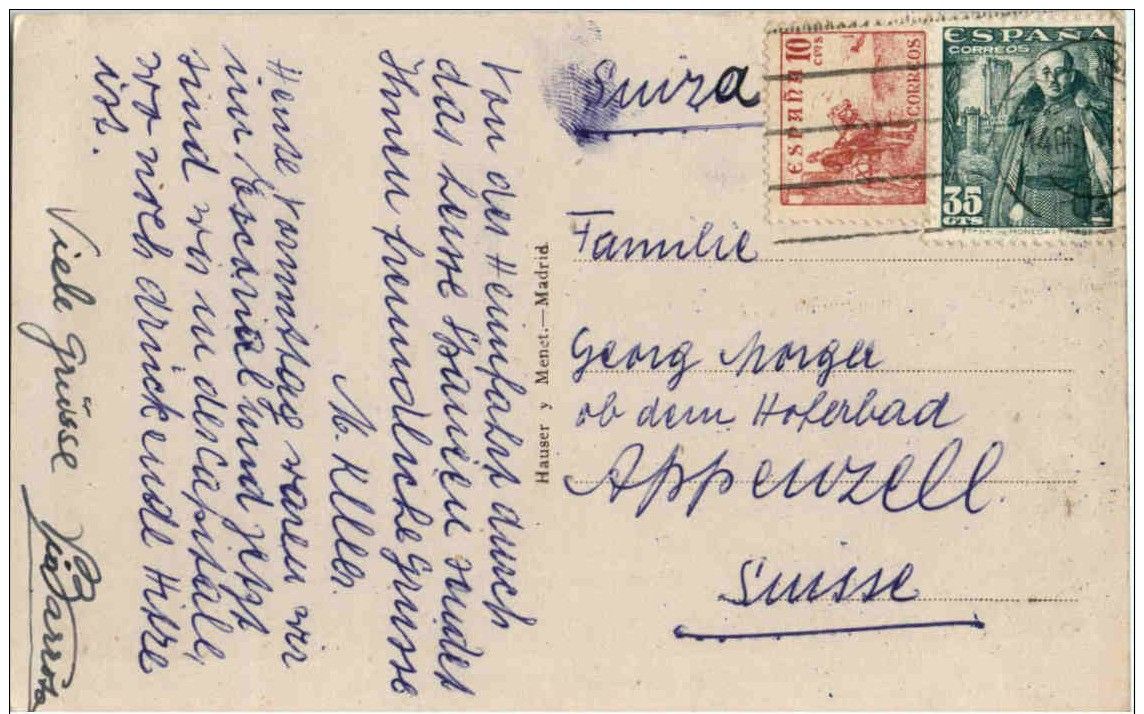 Von der Heimfahrt durch
das heisse Spanien sendet
Ihnen freundliche Grüsse
M. Keller.
Heute Vormittag waren wir
im Escorial und jetzt
sind wir in der Capitale,
wo noch drückende Hitze
ist.
Viele Grüsse
Hauser y Menet.—Madrid
Suiza
ESPAÑA 10 CTVS
CORREOS
ESPAÑA
CORREOS
35
CTS
Familie
Georg Morger
ob dem Hoferbad
Appenzell.
Suisse